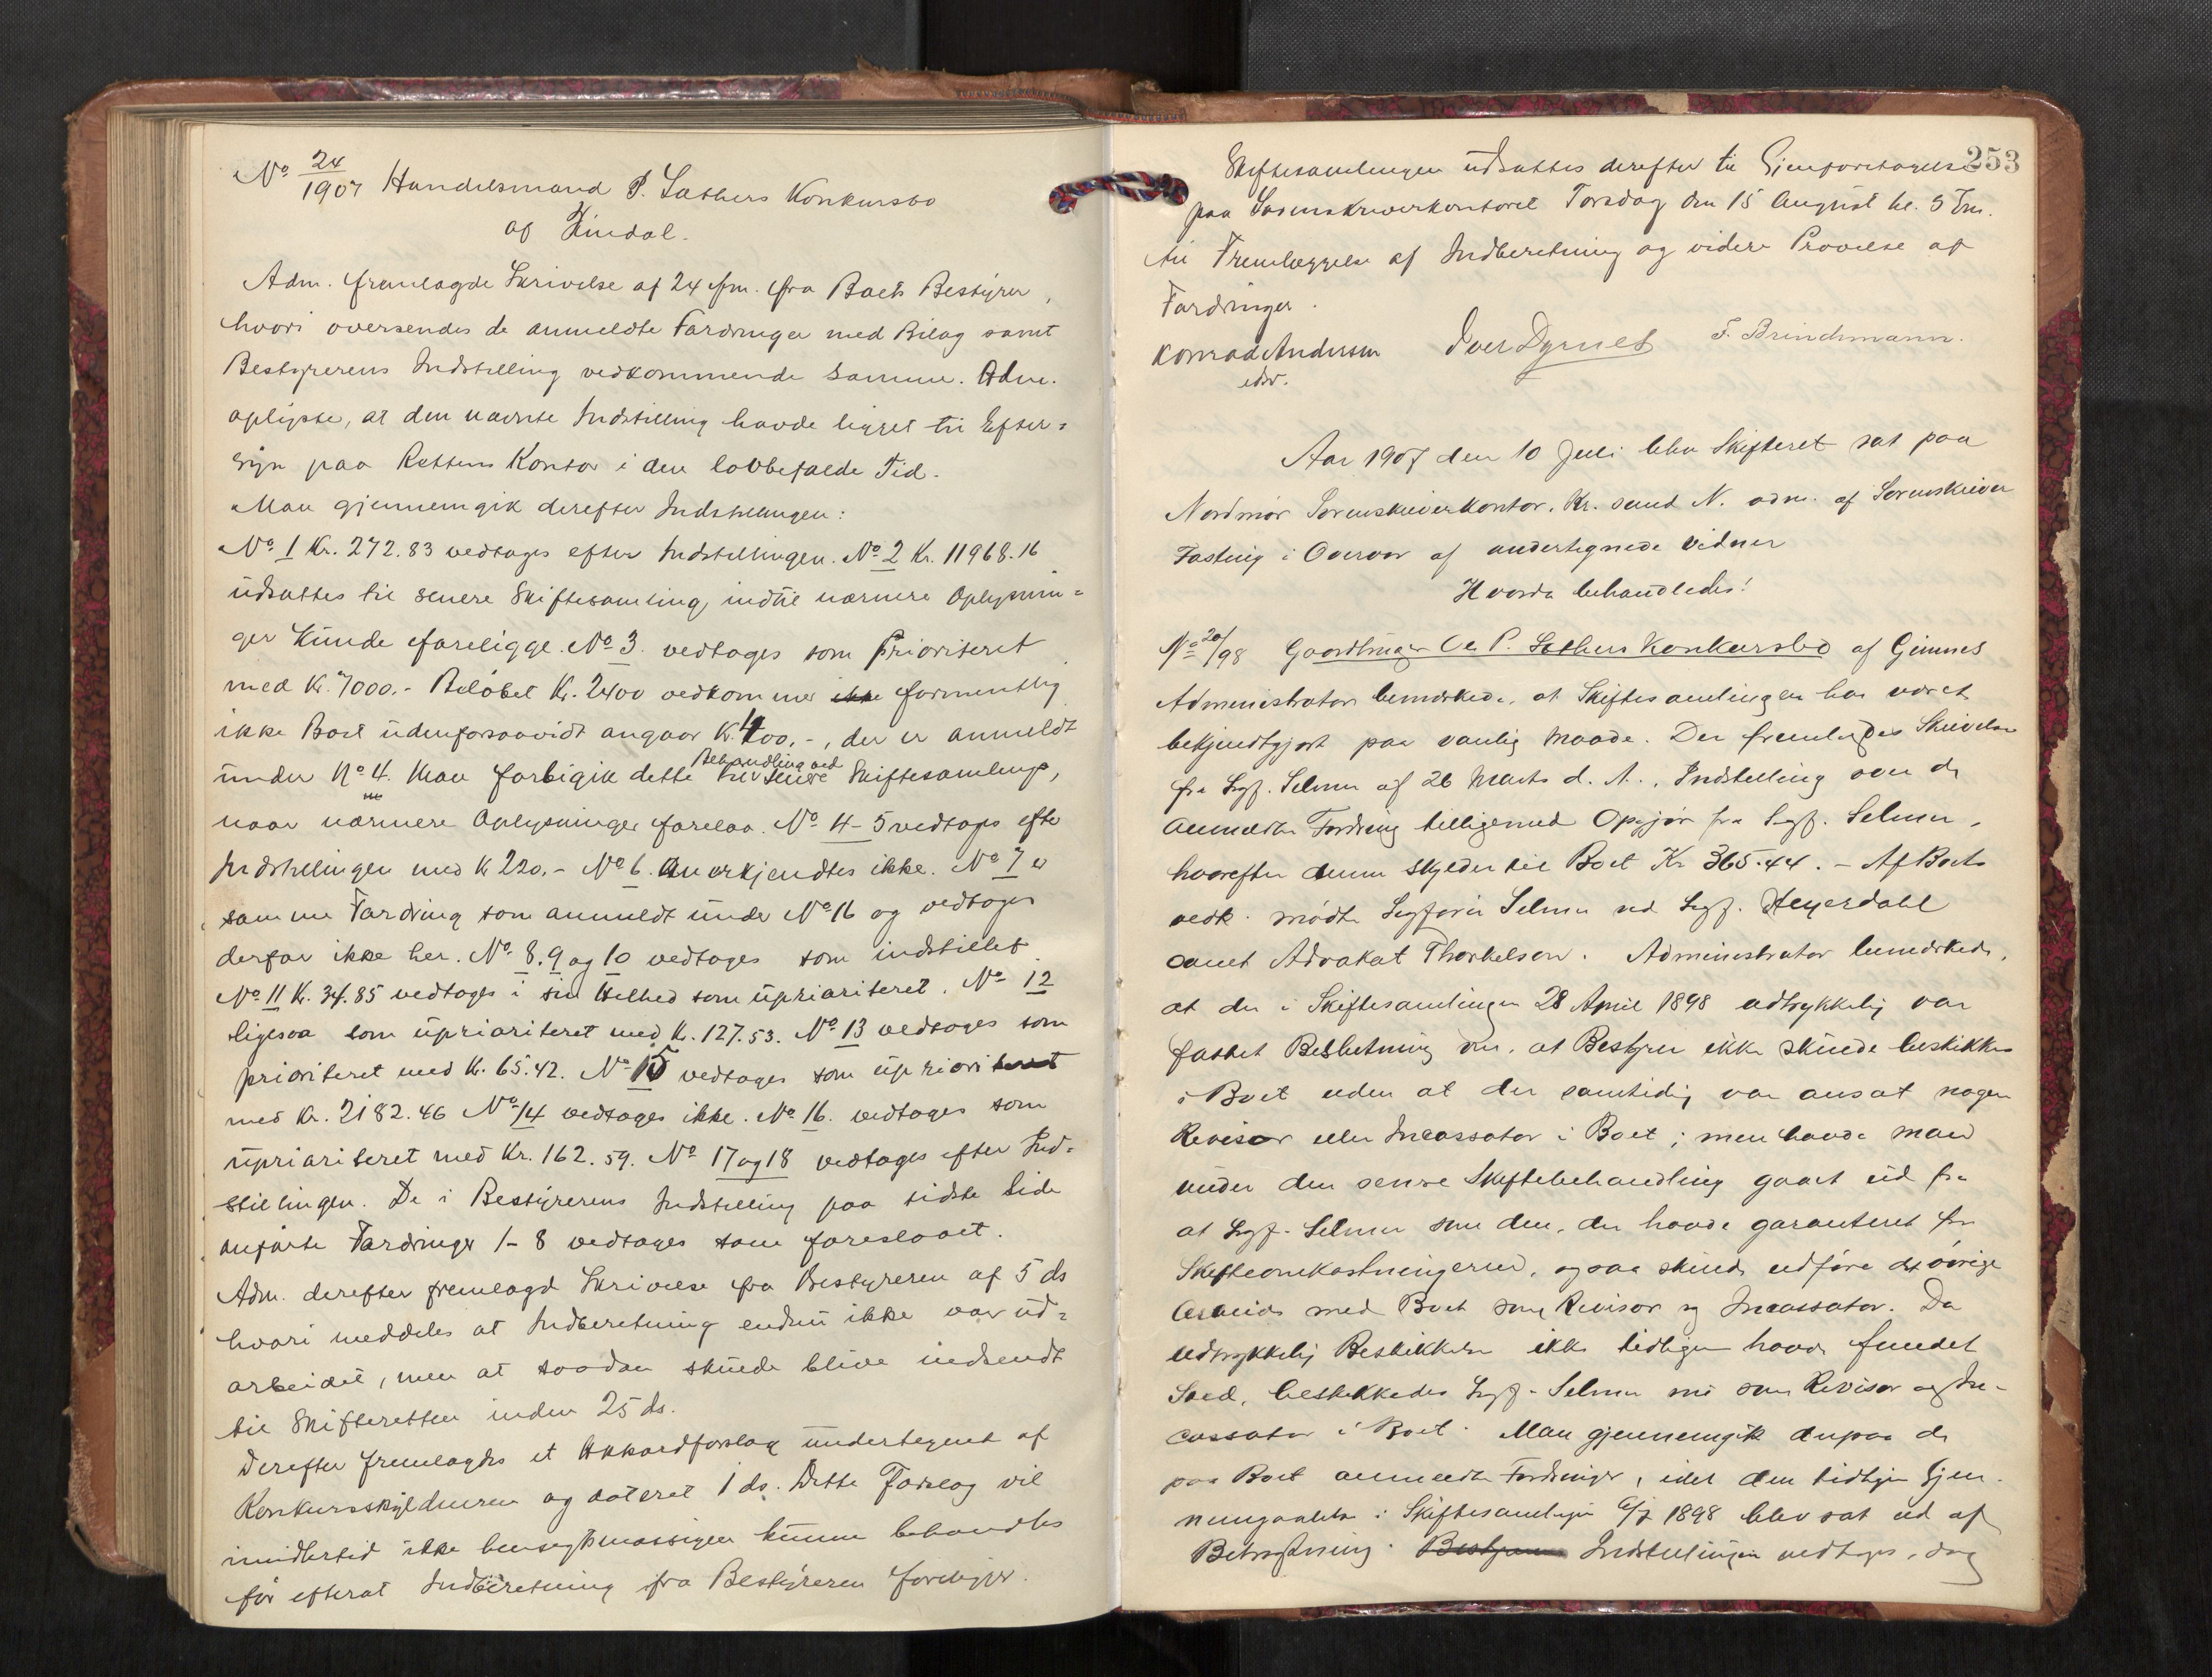 No 24/1907 Handelsmand P. Sæthers Konkursbo
af Rindal.
Adm. fremlagde Skrivelse af 24 fm. fra Boets Bestyrer,
hvori oversendes de anmeldte Fordringer med Bilag samt
Bestyrerens Indstilling vedkommende samme. Adm.
oplyste, at den nævnte Indstilling havde ligget til Efter=
syn paa Rettens Kontor i den lovbefalede Tid.
Man gjennemgik derefter Indstillingen:
No 1 Kr. 272.83 vedtages efter Indstillingen. No 2 Kr. 11968.16
udsattes til senere Skiftesamling, indtil nærmere Oplysnin=
ger kunde foreligge. No 3. vedtages som prioriteret
med Kr. 7000.- Beløbet Kr. 2400 vedkommer ikke formentlig
ikke Boet udenforsaavidt angaar Kr. 400.-, der er anmeldt
under No 4. Man forbigik dette til Behandling ved senere Skiftesamling,
naar nærmere Oplysninger forelaa. No 4-5 vedtages efter
Indstillingen med Kr 220.- No 6. Anerkjendtes ikke. No 7 er
samme Fordring som anmeldt under No 16 og vedtages
derfor ikke her. No. 8. 9 og 10 vedtages som indstillet
No 11 Kr. 34.85 vedtages i sin Helhed som uprioriteret. No 12
ligesaa som uprioriteret med Kr. 127.53. No 13 vedtages som
prioriteret med Kr. 65.42. No 15 vedtages som uprioriteret
med Kr. 2182.46 No 14 vedtages ikke. No 16. vedtages som
uprioriteret med Kr. 162.59. No 17 og 18 vedtages efter Ind=
stillingen. De i Bestyrerens Indstilling paa sidste Side
anførte Fordringer 1-8 vedtages som foreslaaet.
Adm. derefter fremlagd Skrivelse fra Bestyreren af 5 ds
hvori meddeles at Indberetning endnu ikke var ud=
arbeidet, men at saadan skulde blive indsendt
til Skifteretten inden 25 ds.
Derefter fremlagdes et Akkordforslag undertegnet af
Konkursskyldneren og dateret 1 ds. Dette Forslag vil
imidlertid ikke hensigtsmæssigen kunne behandles
før efterat Indberetning fra Bestyreren foreligger.
253
Skiftesamlingen udsattes derefter til Gjenforetagelse
paa Sorenskriverkontoret Torsdag den 15 August kl. 5 Em.
til Fremlæggelse af Indberetning og videre Prøvelse af
Fordringer.
Konrad Andersen Iver Dyrnes F. Brinchmann.
edsv.
Aar 1907 den 10 Juli blev Skifteret sat paa
Nordmør Sorenskriverkontor, Kr.sund N. adm. af Sorenskriver
Fasting i Overvær af undertegnede Vidner
Hvorda behandledes:
No 20/98 Gaardbruger Ole P. Sæthers Konkursbo af Gimnes
Administrator bemærkede, at Skiftesamlingen har været
bekjendtgjort paa vanlig Maade. Der fremlagdes Skrivelse
fra Sagf. Selmer af 26 Marts d. A., Indstilling over de
anmeldte Fordring tilligemed Opgjør fra Sagf. Selmer,
hvorefter denne skylder til Boet Kr 365.44. - Af Boets
vedk. mødte Sagfører Selmer ved Sagf. Heyerdahl
samt Advokat Thorkelson. Administrator bemærkede,
at der i Skiftesamlingen 28 April 1898 udtrykkelig var
fattet Beslutning om, at Bestyrer ikke skulde beskikkes
i Boet uden at der samtidig var ansat nogen
Revisor eller Incassator i Boet; men havde man
under den senere Skiftebehandling gaaet ud fra
at Sagf. Selmer som den, der havde garanteret for
Skifteomkostningerne, ogsaa skulde udføre det øvrige
Arbeide med Boet som Revisor og Incassator. Da
udtrykkelig Beskikkelse ikke tidligere havde fundet
Sted, beskikkedes Sagf. Selmer nu som Revisor og In-
cassator i Boet. Man gjennemgik dernpaa de
paa Boet anmeldte Fordringer, idet den tidligere Gjen-
nemgaaelse i Skiftesamlingen 6/7 1898 blev sat ud af
Betragtning. Indstillingen vedtages, dog